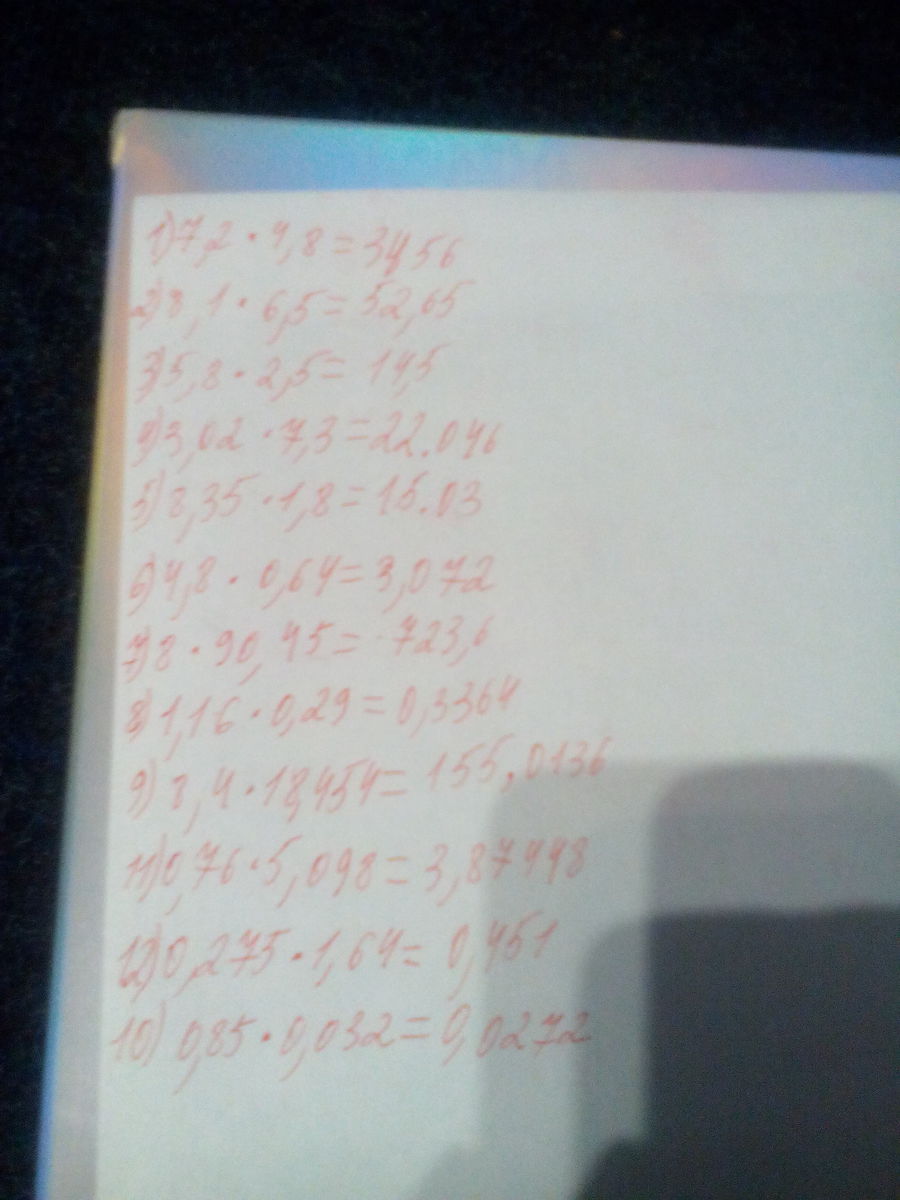 1) 7,2 · 4,8 = 34,56
2) 8,1 · 6,5 = 52,65
3) 5,8 · 2,5 = 14,5
4) 3,02 · 7,3 = 22.046
5) 8,35 · 1,8 = 15.03
6) 4,8 · 0,64 = 3,072
7) 8 · 90,45 = 723,6
8) 1,16 · 0,29 = 0,3364
9) 8,4 · 18,454 = 155,0136
11) 0,76 · 5,098 = 3,87448
12) 0,275 · 1,64 = 0,451
10) 0,85 · 0,032 = 0,0272